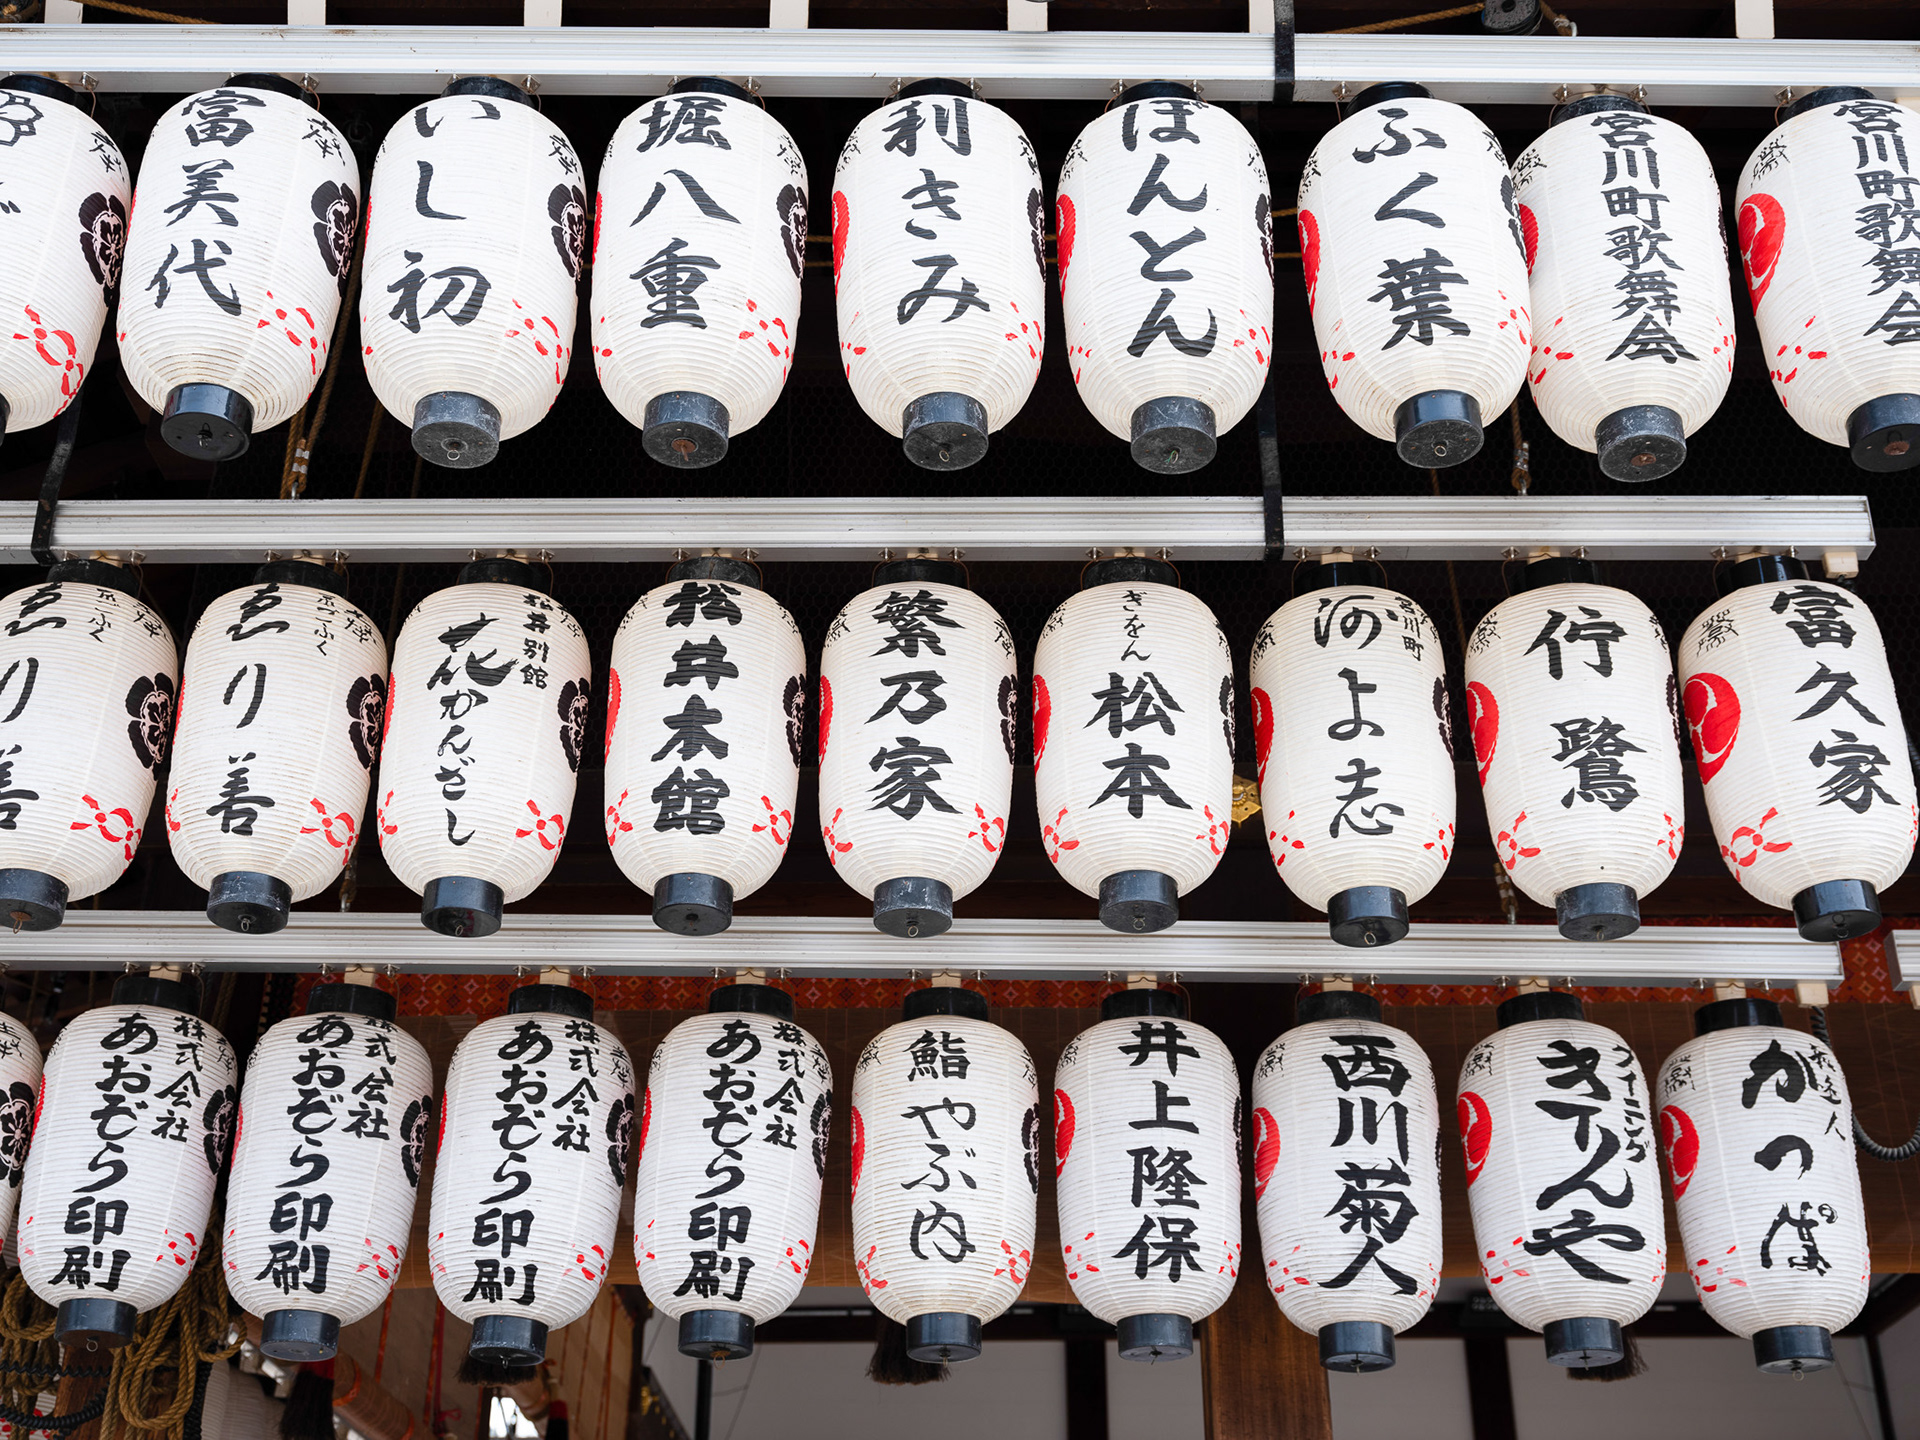 富美代
いし初
堀八重
利きみ
ぼんとん
ふく葉
宮川町歌舞会
宮川町歌舞会
ゑり善
京ごふく
ゑり善
松井別館
花かんざし
松井本館
繁乃家
ぎをん
松本
宮川町
河よ志
佇鷺
富久家
株式会社
あおぞら印刷
株式会社
あおぞら印刷
株式会社
あおぞら印刷
株式会社
あおぞら印刷
鮨
やぶ内
井上隆保
西川菊人
かつぱ